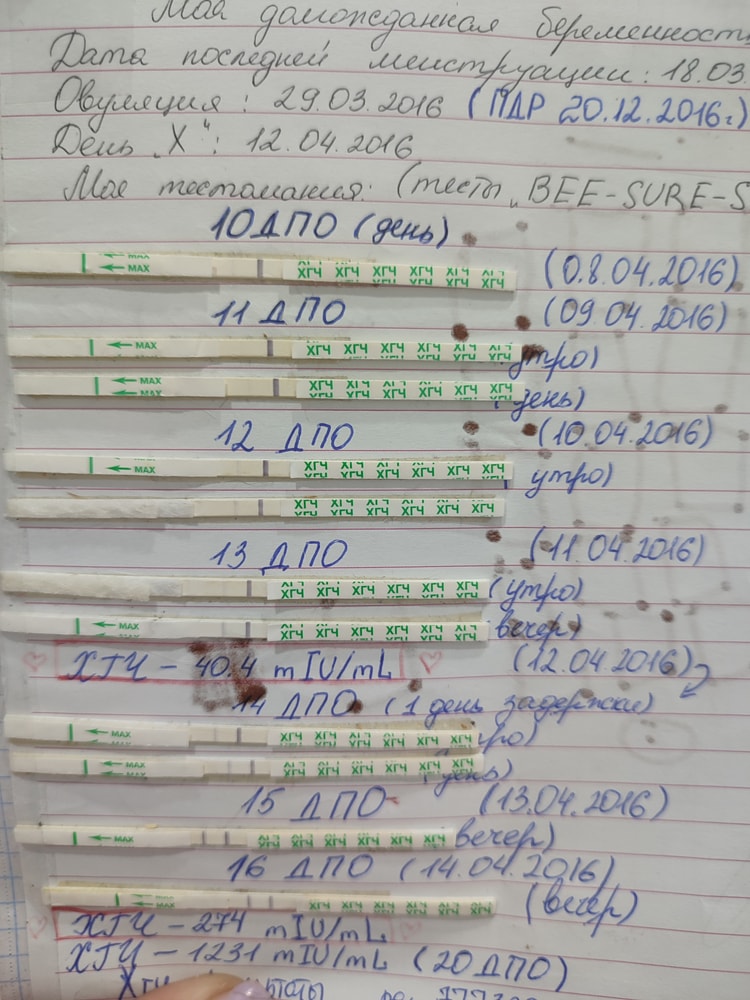 Моя долгожданная беременность
Дата последней менструации: 18.03
Овуляция: 29.03.2016 (ПДР 20.12.2016г.)
День „Х": 12.04.2016
Мое тестомания: (тесты „BEE-SURE-S
10 ДПО (день)
MAX
MAX
ХГЧ ХГЧ ХГЧ ХГЧ ХГЧ ХГЧ
(08.04.2016)
11 ДПО
(09.04.2016)
MAX
ХГЧ ХГЧ ХГЧ ХГЧ ХГЧ ХГЧ
утро)
MAX
MAX
ХГЧ ХГЧ ХГЧ ХГЧ ХГЧ ХГЧ
(день)
12 ДПО
(10.04.2016)
MAX
ХГЧ ХГЧ ХГЧ ХГЧ ХГЧ ХГЧ
утро)
ХГЧ ХГЧ ХГЧ ХГЧ ХГЧ ХГЧ
13 ДПО
(11.04.2016)
ХГЧ ХГЧ ХГЧ ХГЧ ХГЧ ХГЧ
(утро)
MAX
ХГЧ ХГЧ ХГЧ ХГЧ ХГЧ ХГЧ
вечер)
ХГЧ – 40.4 mIU/mL
(12.04.2016)
14 ДПО (1 день задержки)
MAX
ХГЧ ХГЧ ХГЧ ХГЧ ХГЧ ХГЧ
тро)
MAX
ХГЧ ХГЧ ХГЧ ХГЧ ХГЧ ХГЧ
(день)
15 ДПО
(13.04.2016)
MAX
ХГЧ ХГЧ ХГЧ ХГЧ ХГЧ ХГЧ
вечер)
16 ДПО (14.04.2016)
MAX
ХГЧ ХГЧ ХГЧ ХГЧ ХГЧ ХГЧ
(вечер)
ХГЧ – 274 mIU/mL
ХГЧ – 1231 mIU/mL (20 ДПО)